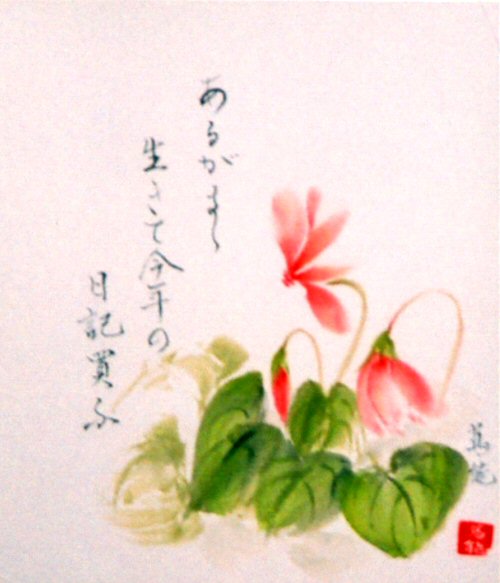 あるがまゝ
生きて今年の
日記買ふ